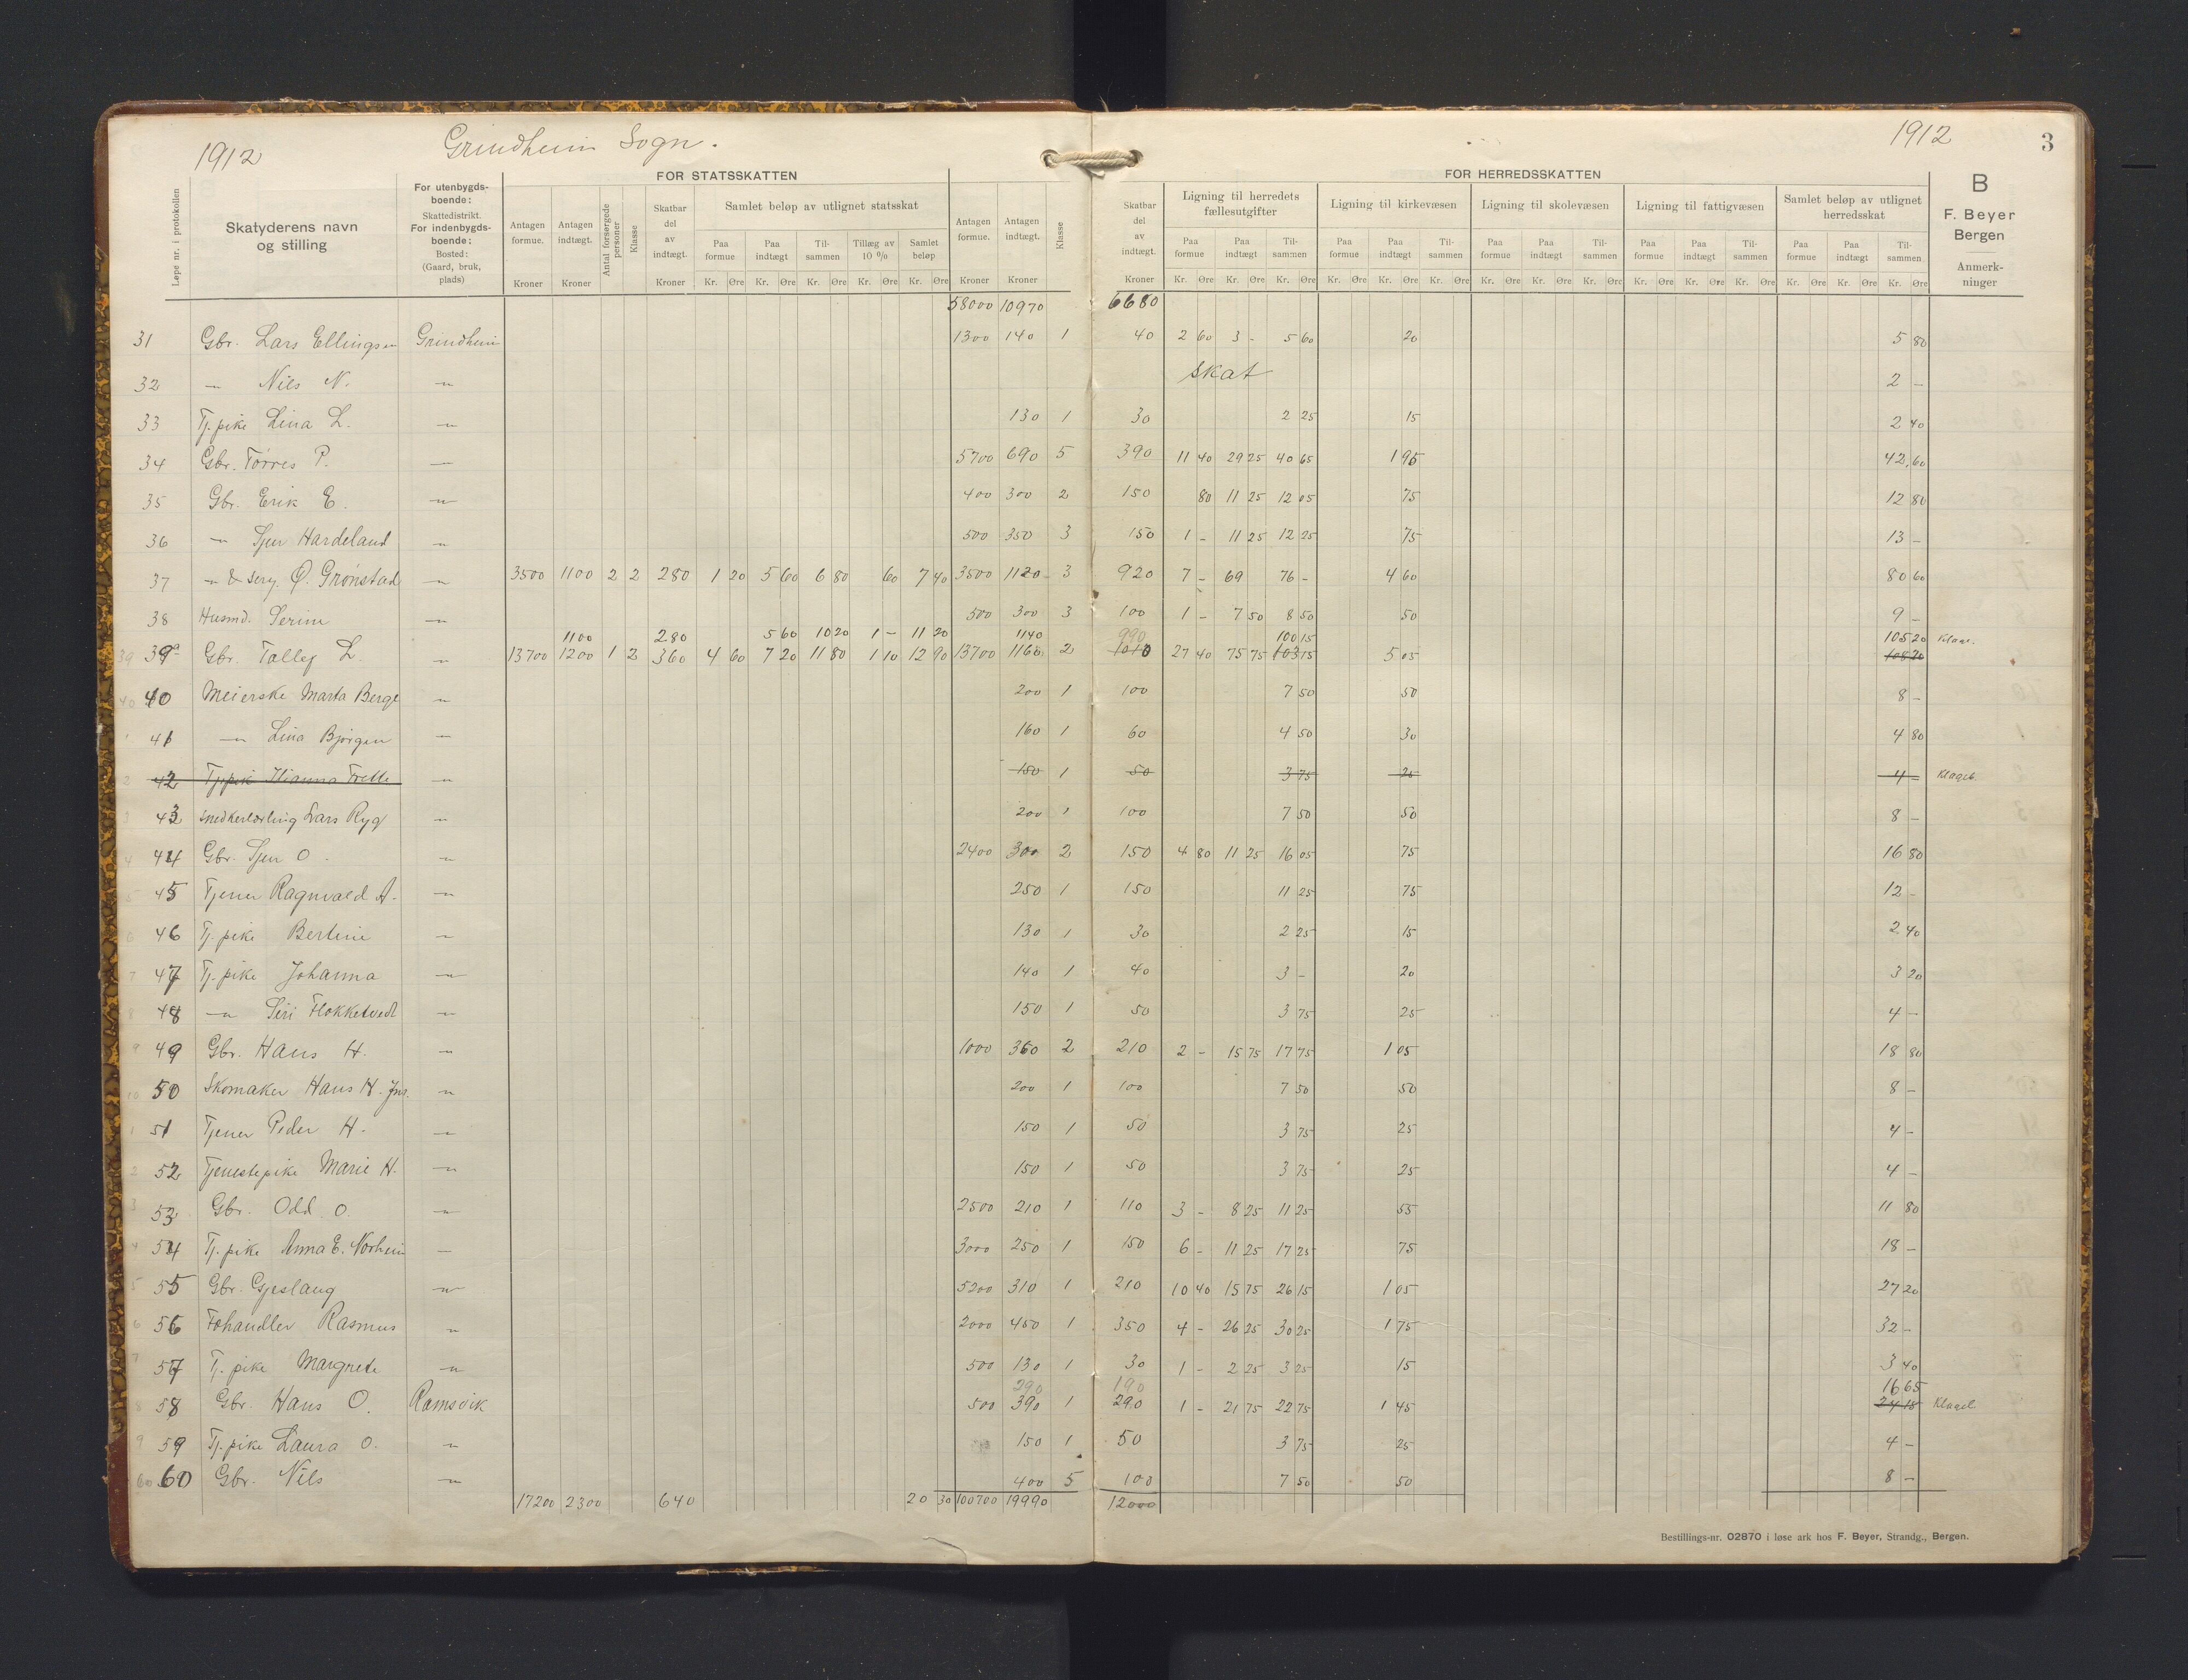 1912 Grindheim Sogn. 1912 3
FOR STATSSKATTEN FOR HERREDSSKATTEN
Løpe nr. i protokollen
Skatyderens navn og stilling
For utenbygds-boende: Skattedistrikt. For indenbygds-boende: Bosted: (Gaard, bruk, plads)
Antagen formue. Kroner
Antagen indtægt. Kroner
Antal forsørgede personer
Klasse
Skatbar del av indtægt. Kroner
Samlet beløp av utlignet statsskat
Paa formue Kr. Øre Paa indtægt Kr. Øre Til-sammen Kr. Øre Tillæg av 10 % Kr. Øre Samlet beløp Kr. Øre
Antagen formue. Kroner
Antagen indtægt. Kroner
Klasse
Skatbar del av indtægt. Kroner
Ligning til herredets fællesutgifter
Paa formue Kr. Øre Paa indtægt Kr. Øre Til-sammen Kr. Øre
Ligning til kirkevæsen
Paa formue Kr. Øre Paa indtægt Kr. Øre Til-sammen Kr. Øre
Ligning til skolevæsen
Paa formue Kr. Øre Paa indtægt Kr. Øre Til-sammen Kr. Øre
Ligning til fattigvæsen
Paa formue Kr. Øre Paa indtægt Kr. Øre Til-sammen Kr. Øre
Samlet beløp av utlignet herredsskat
Paa formue Kr. Øre Paa indtægt Kr. Øre Til-sammen Kr. Øre
B
F. Beyer
Bergen
Anmerk-ninger
58000 10970 6680
31 Gbr. Lars Ellingsen Grindheim 1300 140 1 40 2 60 3 - 5 60 20 5 80
32 -"- Nils N. -"- skat 2 -
33 Tj. pike Lina L. -"- 130 1 30 2 25 15 2 40
34 Gbr. Torres P. -"- 5700 690 5 390 11 40 29 25 40 65 1 95 42,60
35 Gbr. Erik E. -"- 400 300 2 150 80 11 25 12 05 75 12 80
36 -"- Sjur Hardeland -"- 500 350 3 150 1 - 11 25 12 25 75 13 -
37 -"- & serg. O. Grønstad -"- 3500 1100 2 2 280 1 20 5 60 6 80 60 7 40 3500 1120 3 920 7 - 69 76 - 4 60 80 60
38 Husmd. Serine -"- 500 300 3 100 1 - 7 50 8 50 50 9 -
1100 280 5 60 10 20 1 - 11 20 1140 990 100 15 105 20 Klage.
39 39a Gbr. Tallej L. -"- 13700 1200 1 2 360 4 60 7 20 11 80 1 10 12 90 13700 1160 2 1010 27 40 75 75 103 15 5 05 108 20
40 40 Meierske Marta Berge -"- 200 1 100 7 50 50 8 -
1 41 -"- Lina Bjørgen -"- 160 1 60 4 50 30 4 80
2 42 Tj. pike Hanna Trette -"- 150 1 50 3 75 25 4 - Klaget.
3 43 Snedkerlærling Lars Ryg -"- 200 1 100 7 50 50 8 -
4 44 Gbr. Sjur O. -"- 2400 300 2 150 4 80 11 25 16 05 75 16 80
5 45 Tjener Ragnvald A. -"- 250 1 150 11 25 75 12 -
6 46 Tj. pike Bertine -"- 130 1 30 2 25 15 2 40
7 47 Tj. pike Johanna -"- 140 1 40 3 - 20 3 20
8 48 -"- Siri Flokketvedt -"- 150 1 50 3 75 25 4 -
9 49 Gbr. Hans H. -"- 1000 360 2 210 2 - 15 75 17 75 1 05 18 80
10 50 Skomaker Hans H. Jnr. -"- 200 1 100 7 50 50 8 -
1 51 Tjener Peder H. -"- 150 1 50 3 75 25 4 -
2 52 Tjenestepike Marie H. -"- 150 1 50 3 75 25 4 -
3 53 Gbr. Odd O. -"- 2500 210 1 110 3 - 8 25 11 25 55 11 80
4 54 Tj. pike Anna E. Norheim -"- 3000 250 1 150 6 - 11 25 17 25 75 18 -
5 55 Gbr. Gjeslaug -"- 5200 310 1 210 10 40 15 75 26 15 1 05 27 20
6 56 Fehandler Rasmus -"- 2000 450 1 350 4 - 26 25 30 25 1 75 32 -
7 57 Tj. pike Margrete -"- 500 130 1 30 1 - 2 25 3 25 15 3 40
290 190 16 65
8 58 Gbr. Hans O. Ramsvik 500 390 1 290 1 - 21 75 22 75 1 45 24 15 Klaget.
9 59 Tj. pike Laura O. -"- 150 1 50 3 75 25 4 -
60 60 Gbr. Nils -"- 400 5 100 7 50 50 8 -
17200 2300 640 20 30 100700 19990 12000
Bestillings-nr. 02870 i løse ark hos F. Beyer, Strandg., Bergen.